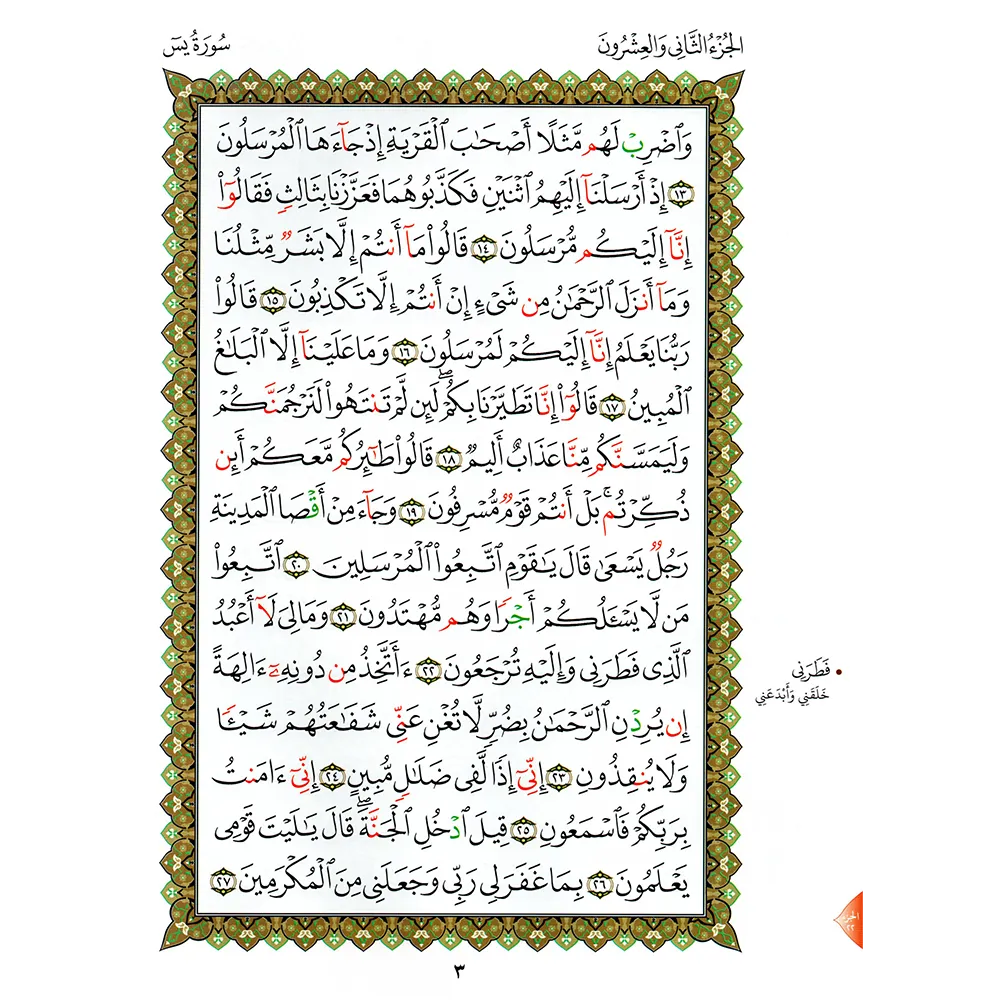 الجُزْءُ الثَّانِي وَالعِشْرُونَ
سُورَةُ يسٓ
وَٱضْرِبْ لَهُم مَّثَلًا أَصْحَٰبَ ٱلْقَرْيَةِ إِذْ جَآءَهَا ٱلْمُرْسَلُونَ
١٣ إِذْ أَرْسَلْنَآ إِلَيْهِمُ ٱثْنَيْنِ فَكَذَّبُوهُمَا فَعَزَّزْنَا بِثَالِثٍ فَقَالُوٓا۟
إِنَّآ إِلَيْكُم مُّرْسَلُونَ ١٤ قَالُوا۟ مَآ أَنتُمْ إِلَّا بَشَرٌ مِّثْلُنَا
وَمَآ أَنزَلَ ٱلرَّحْمَٰنُ مِن شَىْءٍ إِنْ أَنتُمْ إِلَّا تَكْذِبُونَ ١٥ قَالُوا۟
رَبُّنَا يَعْلَمُ إِنَّآ إِلَيْكُمْ لَمُرْسَلُونَ ١٦ وَمَا عَلَيْنَآ إِلَّا ٱلْبَلَٰغُ
ٱلْمُبِينُ ١٧ قَالُوٓا۟ إِنَّا تَطَيَّرْنَا بِكُمْ ۖ لَئِن لَّمْ تَنتَهُوا۟ لَنَرْجُمَنَّكُمْ
وَلَيَمَسَّنَّكُم مِّنَّا عَذَابٌ أَلِيمٌ ١٨ قَالُوا۟ طَٰٓئِرُكُم مَّعَكُمْ أَئِن
ذُكِّرْتُم ۚ بَلْ أَنتُمْ قَوْمٌ مُّسْرِفُونَ ١٩ وَجَآءَ مِنْ أَقْصَا ٱلْمَدِينَةِ
رَجُلٌ يَسْعَىٰ قَالَ يَٰقَوْمِ ٱتَّبِعُوا۟ ٱلْمُرْسَلِينَ ٢٠ ٱتَّبِعُوا۟
مَن لَّا يَسْـَٔلُكُمْ أَجْرًا وَهُم مُّهْتَدُونَ ٢١ وَمَالِىَ لَآ أَعْبُدُ
ٱلَّذِى فَطَرَنِى وَإِلَيْهِ تُرْجَعُونَ ٢٢ ءَأَتَّخِذُ مِن دُونِهِۦٓ ءَالِهَةً
إِن يُرِدْنِ ٱلرَّحْمَٰنُ بِضُرٍّ لَّا تُغْنِ عَنِّى شَفَٰعَتُهُمْ شَيْـًٔا
وَلَا يُنقِذُونِ ٢٣ إِنِّىٓ إِذًا لَّفِى ضَلَٰلٍ مُّبِينٍ ٢٤ إِنِّىٓ ءَامَنتُ
بِرَبِّكُمْ فَٱسْمَعُونِ ٢٥ قِيلَ ٱدْخُلِ ٱلْجَنَّةَ ۖ قَالَ يَٰلَيْتَ قَوْمِى
يَعْلَمُونَ ٢٦ بِمَا غَفَرَ لِى رَبِّى وَجَعَلَنِى مِنَ ٱلْمُكْرَمِينَ ٢٧
• فَطَرَنِى
خَلَقَنِي وَأَبْدَعَنِي
الجزء
٢٢
٣